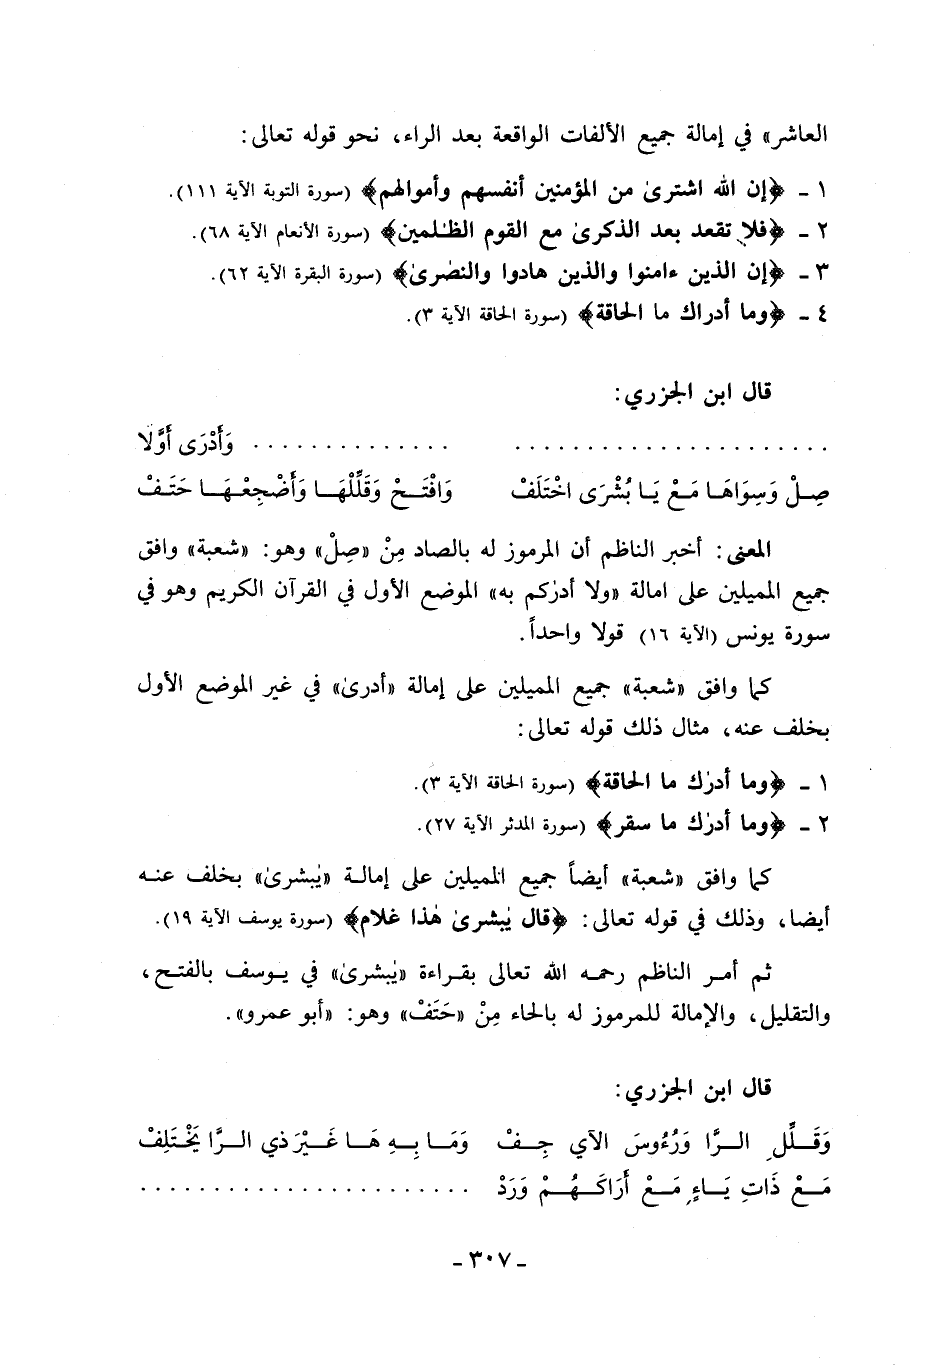 العاشر» في إمالة جميع الألفات الواقعة بعد الراء، نحو قوله تعالى:
١ - ﴿إن الله اشترىٰ من المؤمنين أنفسهم وأموالهم﴾ (سورة التوبة الآية ١١١).
٢ - ﴿فلا تقعد بعد الذكرىٰ مع القوم الظٰلمين﴾ (سورة الأنعام الآية ٦٨).
٣ - ﴿إن الذين ءامنوا والذين هادوا والنصٰرىٰ﴾ (سورة البقرة الآية ٦٢).
٤ - ﴿وما أدراك ما الحاقة﴾ (سورة الحاقة الآية ٣).
قال ابن الجزري:
. . . . . . . . . . . . . . . . . . . . . . . . . . . . . . . . . . . . وَأَدْرَى أَوَّلَا
صِلْ وَسِوَاهَا مَعْ يَا بُشْرَى اخْتَلَفْ وَافْتَحْ وَقَلِّلْهَا وَأَضْجِعْهَا حَتَفْ
المعنى: أخبر الناظم أن المرموز له بالصاد مِنْ «صِلْ» وهو: «شعبة» وافق
جميع المميلين على امالة «ولا أدرٰكم به» الموضع الأول في القرآن الكريم وهو في
سورة يونس (الآية ١٦) قولا واحداً.
كما وافق «شعبة» جميع المميلين على إمالة «أدرىٰ» في غير الموضع الأول
بخلف عنه، مثال ذلك قوله تعالى:
١ - ﴿وما أدرٰك ما الحاقة﴾ (سورة الحاقة الآية ٣).
٢ - ﴿وما أدرٰك ما سقر﴾ (سورة المدثر الآية ٢٧).
كما وافق «شعبة» أيضاً جميع المميلين على إمالة «يٰبشرىٰ» بخلف عنه
أيضا، وذلك في قوله تعالى: ﴿قال يٰبشرىٰ هٰذا غلام﴾ (سورة يوسف الآية ١٩).
ثم أمر الناظم رحمه الله تعالى بقراءة «يٰبشرىٰ» في يوسف بالفتح،
والتقليل، والإمالة للمرموز له بالحاء مِنْ «حَتَفْ» وهو: «أبو عمرو».
قال ابن الجزري:
وَقَلِّلِ الرَّا وَرُءُوسَ الآيِ جِفْ وَمَا بِهِ هَا غَيْرَ ذِي الرَّا يَخْتَلِفْ
مَعْ ذَاتِ يَاءٍ مَعْ أَرَاكَهُمْ وَرَدْ . . . . . . . . . . . . . . . . . . . . . . .
- ٣٠٧ -